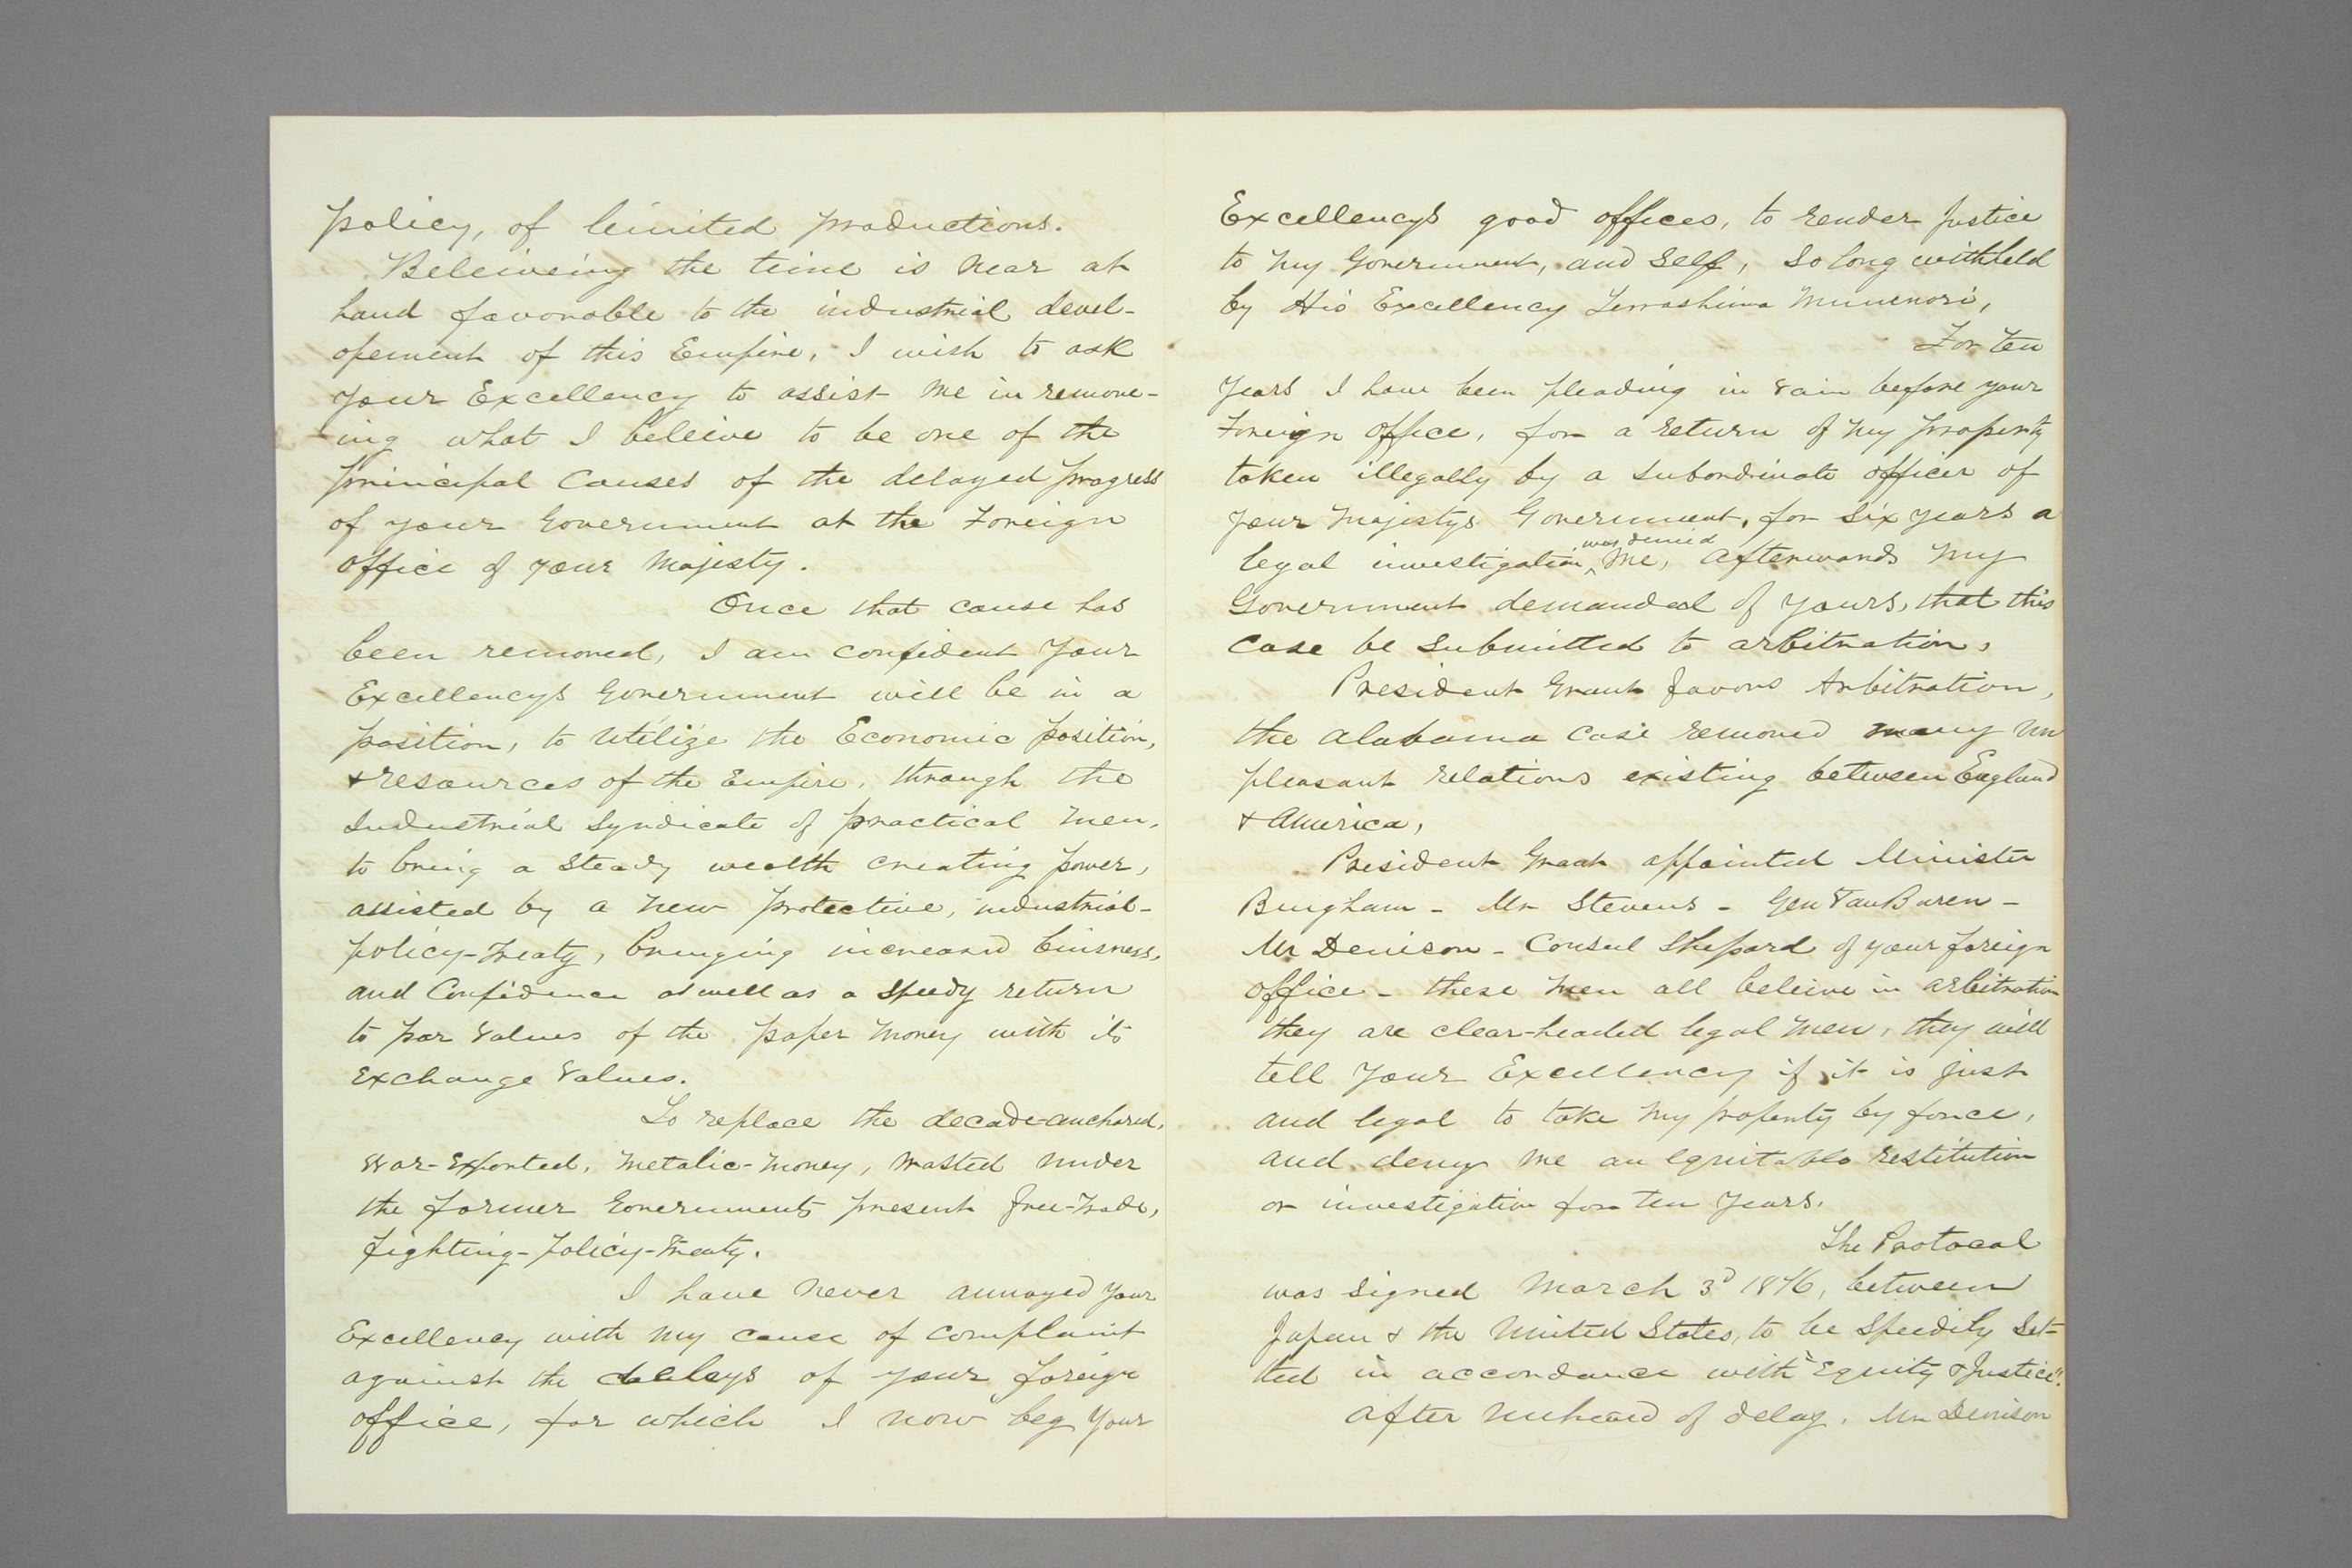 policy, of limited productions.
Beleiveing the time is near at
hand favorable to the industrial devel-
opement of this Empire, I wish to ask
your Excellency to assist me in remove-
ing what I beleive to be one of the
principal Causes of the delayed progress
of your Government at the Foreign
Office of your Majesty.
Once that cause has
been removed, I am confident Your
Excellencys Government will be in a
position, to utilize the Economic position,
& resources of the Empire, through the
Industrial Syndicate of practical men,
to bring a steady wealth creating power,
assisted by a new protective, industrial-
policy-Treaty, bringing increased buisness,
and Confidence as well as a speedy return
to par values of the paper money with its
exchange values.
To replace the decade-anchored,
War-Exported, Metalic-Money, wasted under
the former Governments present free-trade,
fighting-Policy-Treaty.
I have never annoyed your
Excellency with my cause of complaint
against the delays of your foreign
office, for which I now beg your
Excellencys good offices, to render Justice
to my Government, and Self, so long withheld
by His Excellency Terrashima Munenori,
For ten
years I have been pleading in vain before your
Foreign office, for a return of my property
taken illegally by a subordinate officer of
your Majestys Government, for six years a
legal investigation was denied me, afterwards my
Government demanded of yours, that this
Case be submitted to arbitration,
President Grant favors Arbitration,
the Alabama Case removed many un
pleasant relations existing between England
& America,
President Grant appointed Minister
Bingham - Mr Stevens - Gen Van Buren -
Mr Denison - Consul Shepard of your foreign
office - these men all beleive in arbitration
they are clear-headed legal men, they will
tell Your Excellency if it is just
and legal to take my property by force,
and deny me an equitable restitution
or investigation for ten years.
The Protocal
was signed March 3d 1876, between
Japan & the United States, to be speedily set-
tled in accordance with "Equity & Justice".
After unheard of delay, Mr Denison